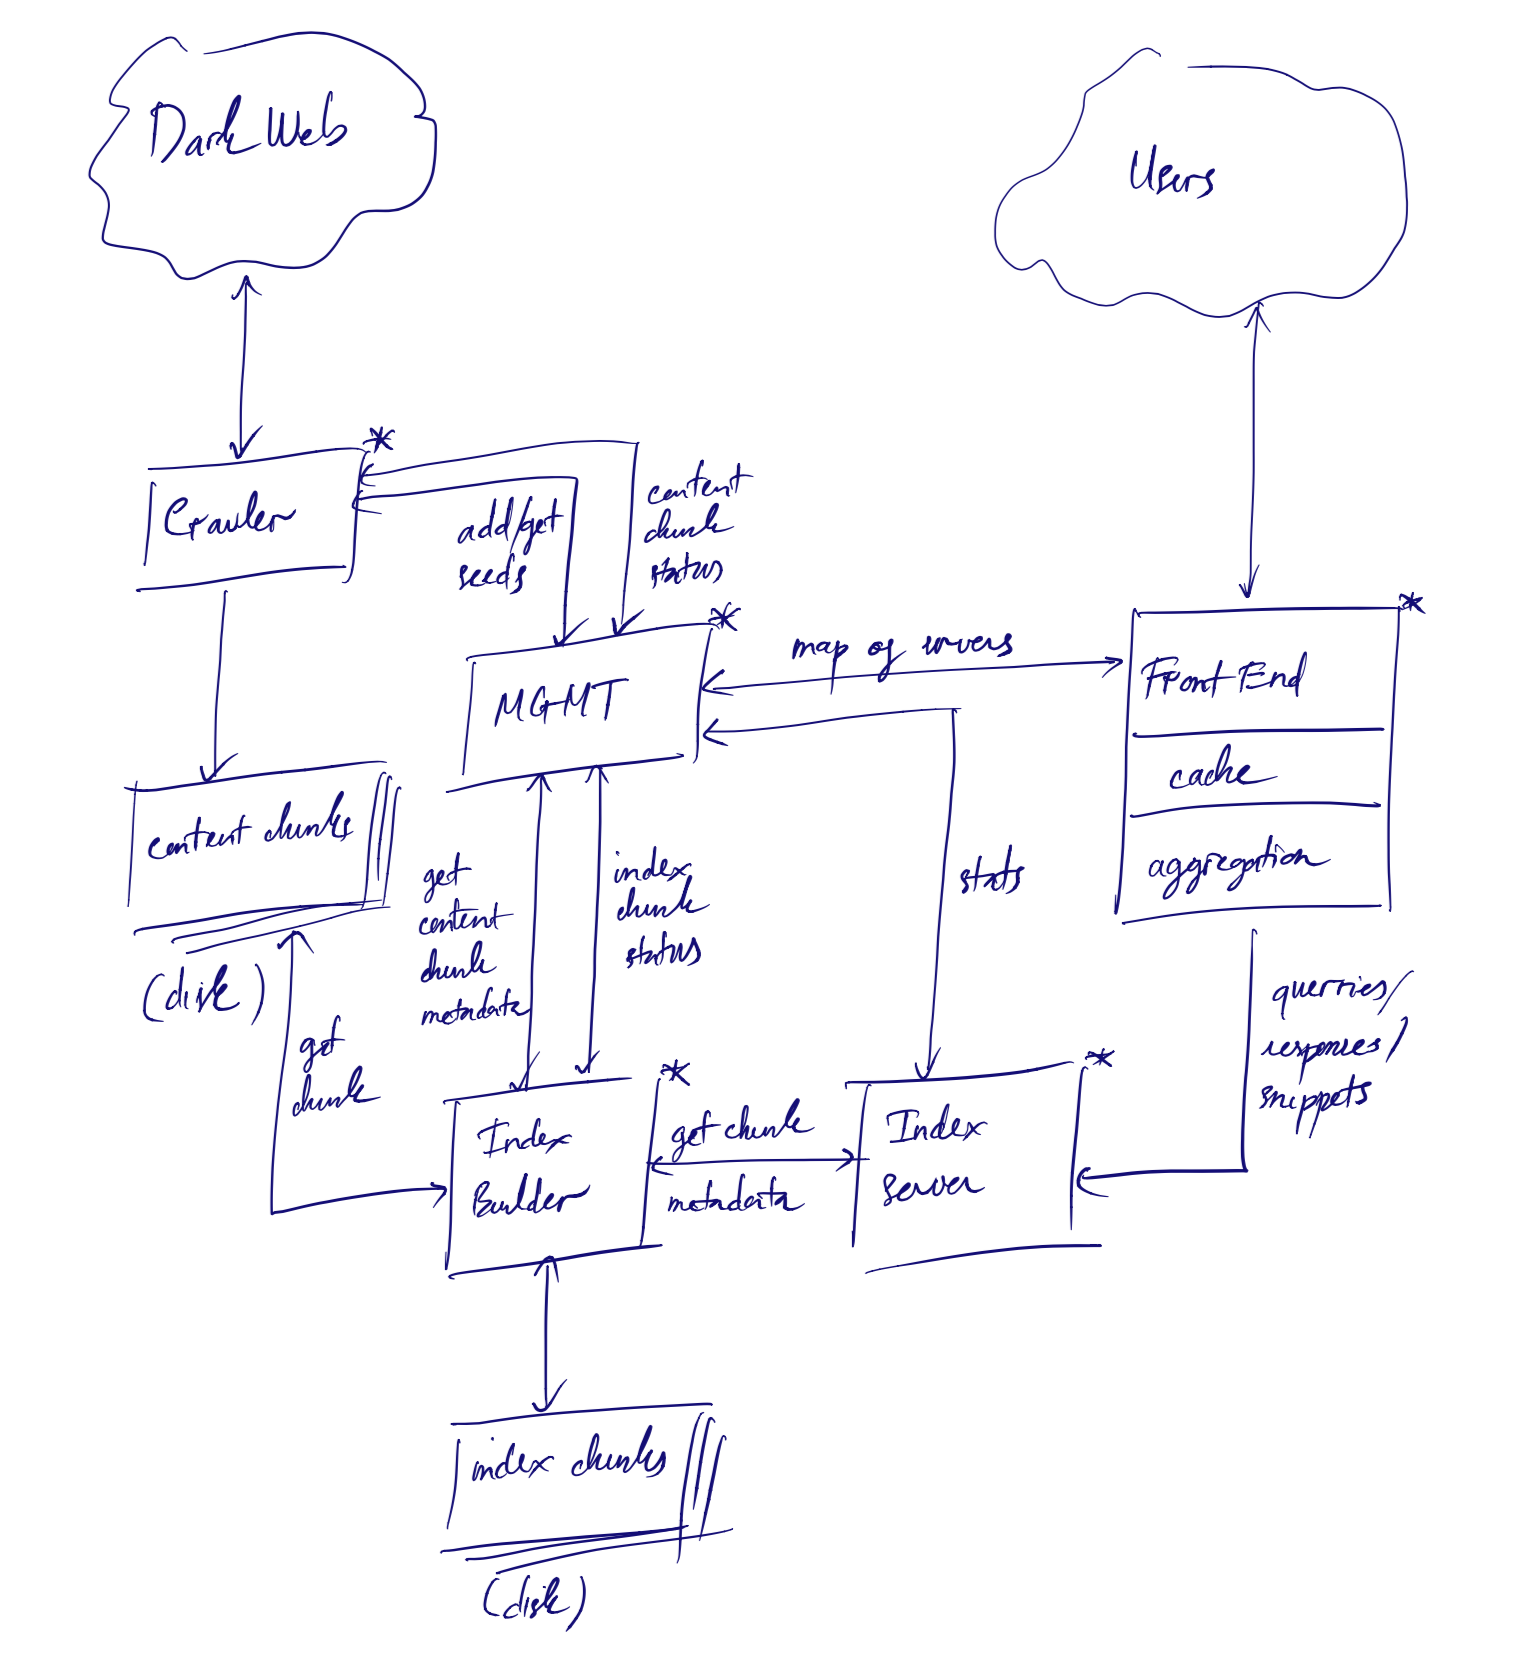 Dark Web
Users
*
Crawler
add/get
seeds
content
chunk
status
*
MGMT
map of servers
*
Front End
cache
aggregation
content chunks
(disk)
get
chunk
get
content
chunk
metadata
index
chunk
status
stats
querries/
responses/
snippets
*
Index
Builder
get chunk
metadata
*
Index
Server
index chunks
(disk)